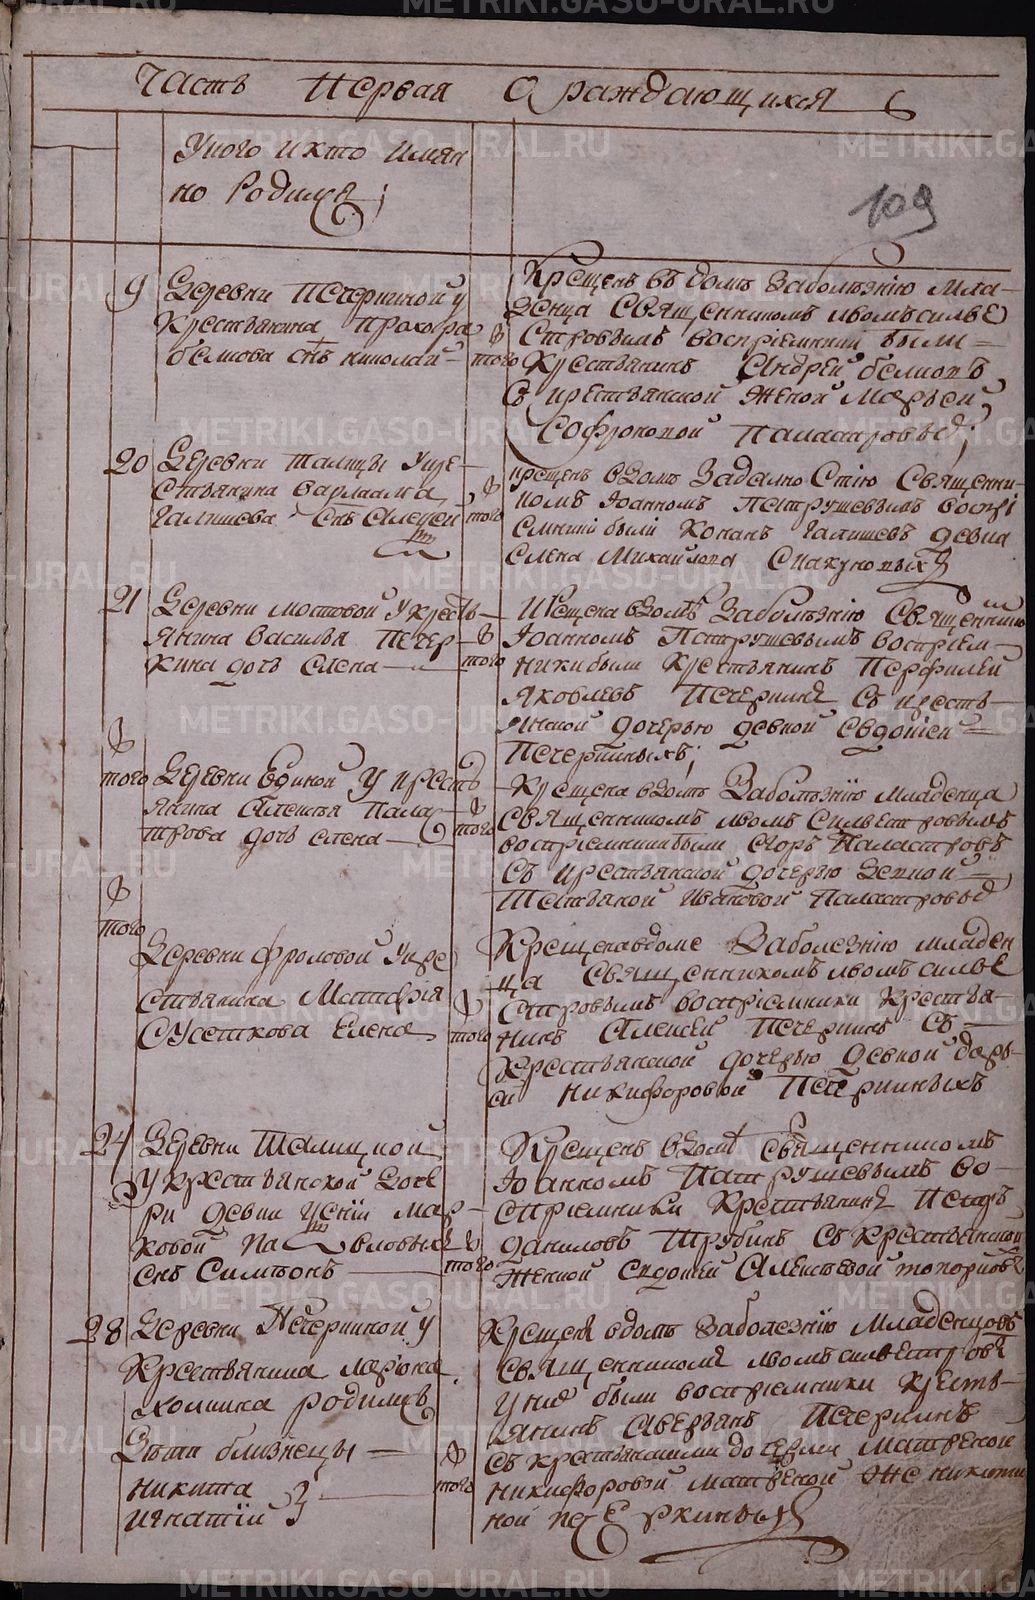 Часть Первая О раждающихся
109
Укого икто имян
но Родился;
9 Деревни Печеркиной у
Крестьянина Прохора
белкова снъ николай
того
Крещенъ въ домѣ Заболѣзнію мла-
денца Священникомъ львомъ силве
стровымъ воспріемники были
Крестьянинъ Андрей белковъ
съ крестьянской женой Марьей
Софроновой
20 Деревни Талицы Укре-
стьянина Варлаама
Галишева снъ Алексей
того
крещенъ вдомѣ Священни-
комъ Іоанномъ Петрушевымъ воспрі
емники были Галишевъ девка
елена Михайлова
21 Деревни мостовой Укресть-
янина Василья Печер-
кина дочь елена
того
Крещена вдомѣ Заболѣзнію Священнико
Іоанномъ Петрушевымъ воспріем-
ники были Крестьянинъ Перфилей
Яковлевъ Печеркинъ съ кресть-
янской дочерью девкой Евдокіей
Печеркиныхъ;
того Деревни Единой у кресть
янина Алексѣя Пала
трова дочь елена
того
Крещена вдомѣ Заболѣзнію младенца
священникомъ львомъ Сильвестровымъ
воспріемники были
съ крестьянской дочерью девкой
Татьяной Ивановой
того
Деревни фроловой Укре
стьянина
Сусеткова Елена
того
Крещена вдоме Заболезнію младен
ца Священникомъ львомъ силве
стровымъ воспріемники Крестья-
нинъ Алексей Печеркинъ съ
Крестьянской дочерью девкой дарь-
ей Никифоровой Печеркиныхъ
24 Деревни Талицкой
у Крестьянской доче
ри девки Мар-
ковой Павловыхъ
снъ Симеонъ
того
Крещенъ вдомѣ священникомъ
Іоанномъ Петрушевымъ во-
спріемники Крестьянинъ
даниловъ Трубинъ съ Крестьянской
женкой Алексѣевой
28 Деревни Печеркиной у
Крестьянина
холкина родились
Дѣти близнецы
никита
игнатій
того
Крещены вдомѣ Заболезнію Младенцовъ
священникомъ львомъ силвестровы
у нихъ были воспріемники Кресть-
янинъ Аверьянъ Печеркинъ
съ крестьянскими дочерми матреной
Никифоровой матреной же никити
ной печеркиныхъ
METRIKI.GASO-URAL.RU